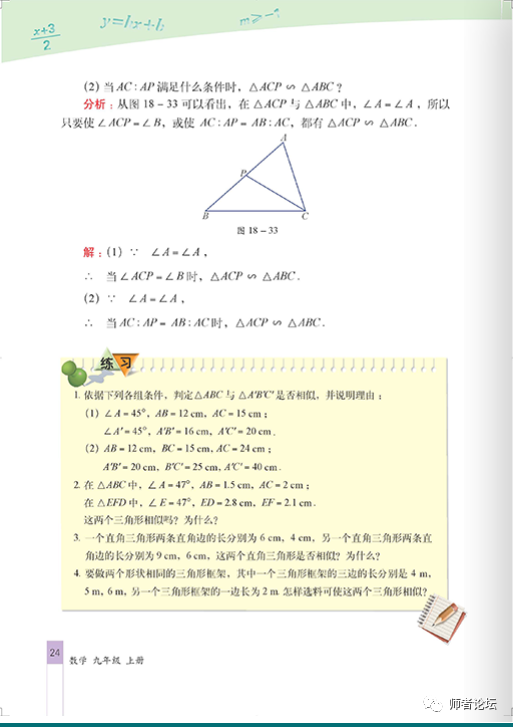 x+3
2
y=kx+b
(2) 当 AC : AP 满足什么条件时，△ACP ∽ △ABC？
分析：从图 18－33 可以看出，在 △ACP 与 △ABC 中，∠A＝∠A，所以
只要使 ∠ACP＝∠B，或使 AC : AP＝AB : AC，都有 △ACP ∽ △ABC．
A
P
B
C
图 18－33
解：(1) ∵ ∠A＝∠A，
∴ 当 ∠ACP＝∠B 时，△ACP ∽ △ABC．
(2) ∵ ∠A＝∠A，
∴ 当 AC : AP＝AB : AC 时，△ACP ∽ △ABC．
练习
1. 依据下列各组条件，判定△ABC 与 △A′B′C′是否相似，并说明理由：
(1) ∠A＝45°，AB＝12 cm，AC＝15 cm；
∠A′＝45°，A′B′＝16 cm，A′C′＝20 cm．
(2) AB＝12 cm，BC＝15 cm，AC＝24 cm；
A′B′＝20 cm，B′C′＝25 cm，A′C′＝40 cm．
2. 在 △ABC 中，∠A＝47°，AB＝1.5 cm，AC＝2 cm；
在 △EFD 中，∠E＝47°，ED＝2.8 cm，EF＝2.1 cm．
这两个三角形相似吗？为什么？
3. 一个直角三角形两条直角边的长分别为 6 cm，4 cm，另一个直角三角形两条直
角边的长分别为 9 cm，6 cm，这两个直角三角形是否相似？为什么？
4. 要做两个形状相同的三角形框架，其中一个三角形框架的三边的长分别是 4 m，
5 m，6 m，另一个三角形框架的一边长为 2 m．怎样选料可使这两个三角形相似？
24
数学 九年级 上册
师者论坛